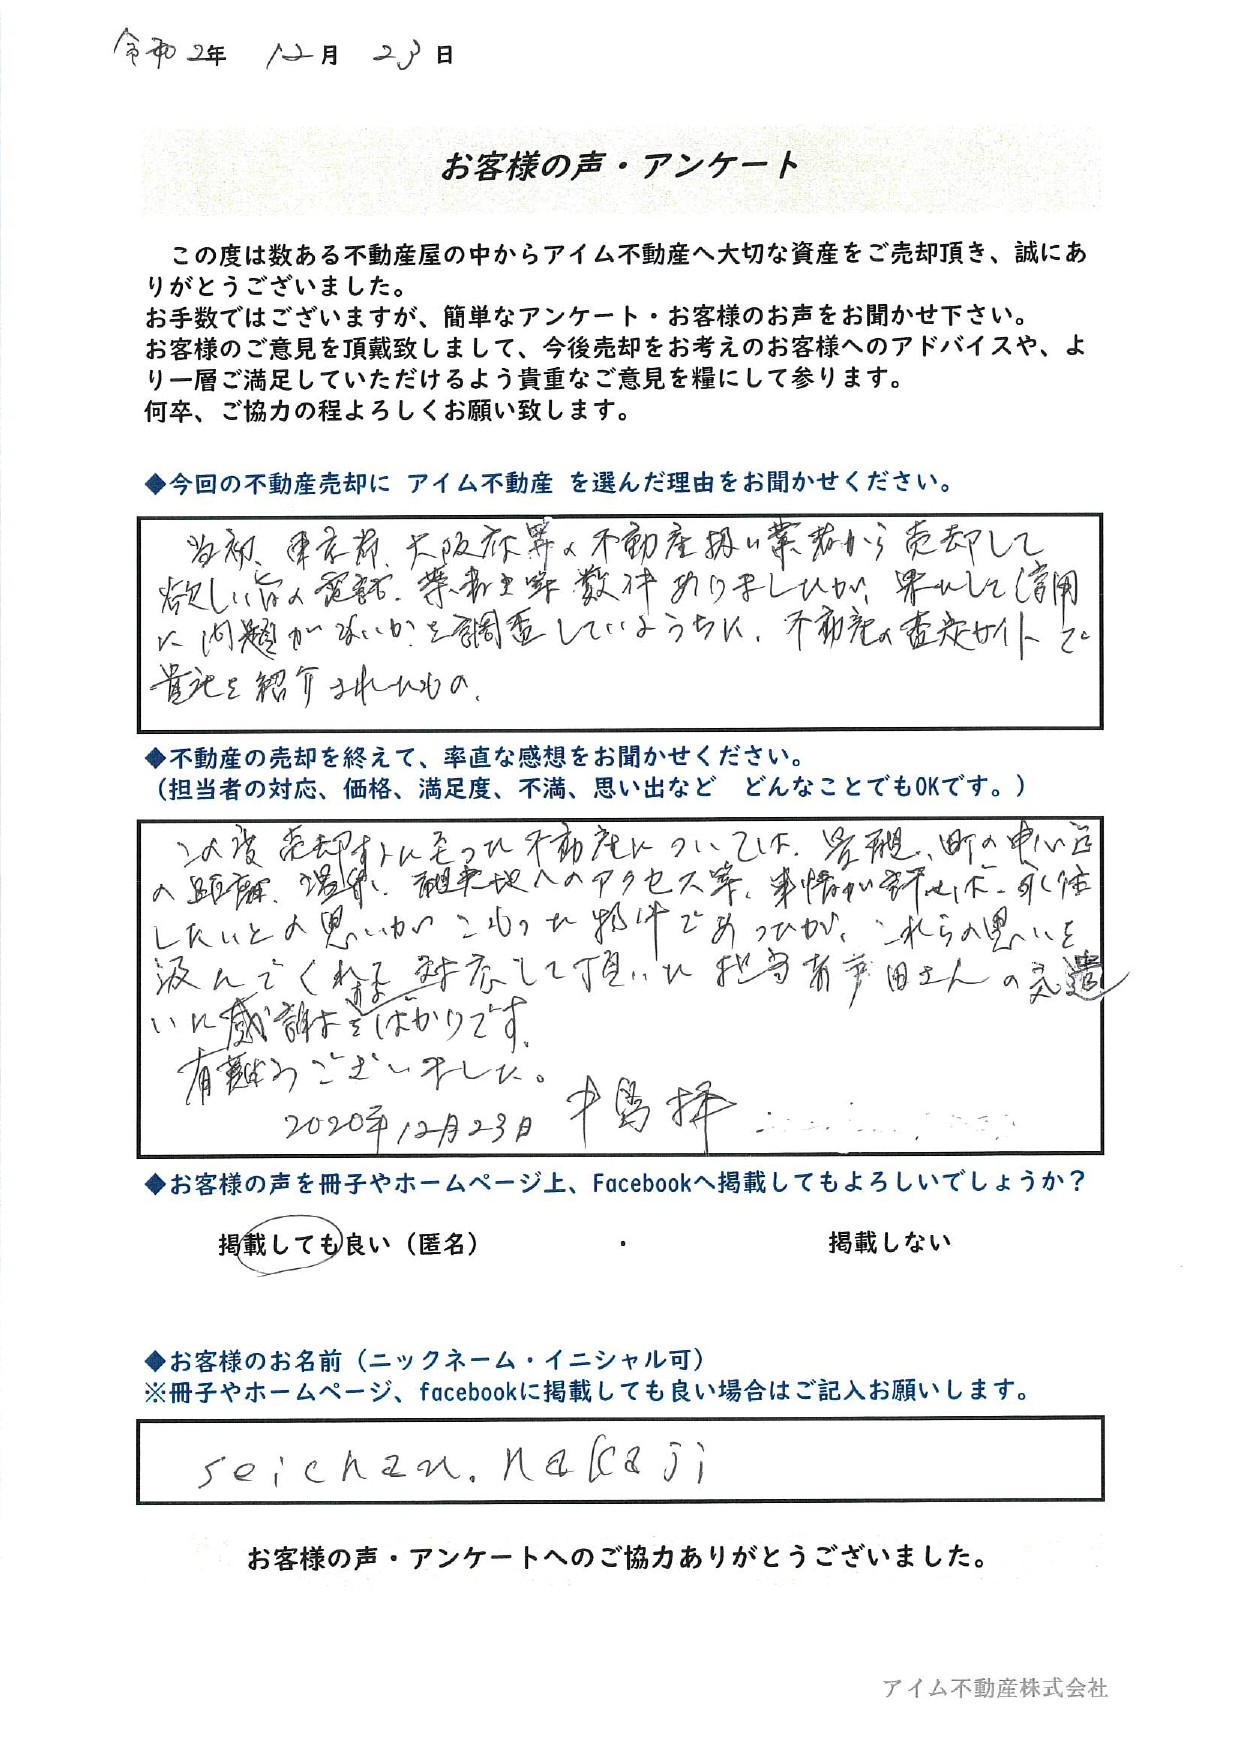 令和2年 12月 23日
お客様の声・アンケート
この度は数ある不動産屋の中からアイム不動産へ大切な資産をご売却頂き、誠にあ
りがとうございました。
お手数ではございますが、簡単なアンケート・お客様のお声をお聞かせ下さい。
お客様のご意見を頂戴致しまして、今後売却をお考えのお客様へのアドバイスや、よ
り一層ご満足していただけるよう貴重なご意見を糧にして参ります。
何卒、ご協力の程よろしくお願い致します。
◆今回の不動産売却に アイム不動産 を選んだ理由をお聞かせください。
当初、東京都、大阪府等の不動産扱い業者から売却して
欲しい旨の電話、業者 数件ありましたが、果たして信用
に問題がないかを調査しているうちに、不動産の査定サイトで
貴社を紹介されたもの。
◆不動産の売却を終えて、率直な感想をお聞かせください。
（担当者の対応、価格、満足度、不満、思い出など どんなことでもOKです。）
この度売却するに至った不動産については、景観、町の中心迄
の距離、温泉、観光地へのアクセス等、事情が許せば永住
したいとの思いがこもった物件であったが、これらの思いを
汲んでくれる対応して頂いた担当者戸田さんの気遣
いに感謝するばかりです。
有難うございました。
2020年12月23日 中島 拝
◆お客様の声を冊子やホームページ上、Facebookへ掲載してもよろしいでしょうか？
掲載しても良い（匿名） ・ 掲載しない
◆お客様のお名前（ニックネーム・イニシャル可）
※冊子やホームページ、facebookに掲載しても良い場合はご記入お願いします。
seichan. nakaji
お客様の声・アンケートへのご協力ありがとうございました。
アイム不動産株式会社